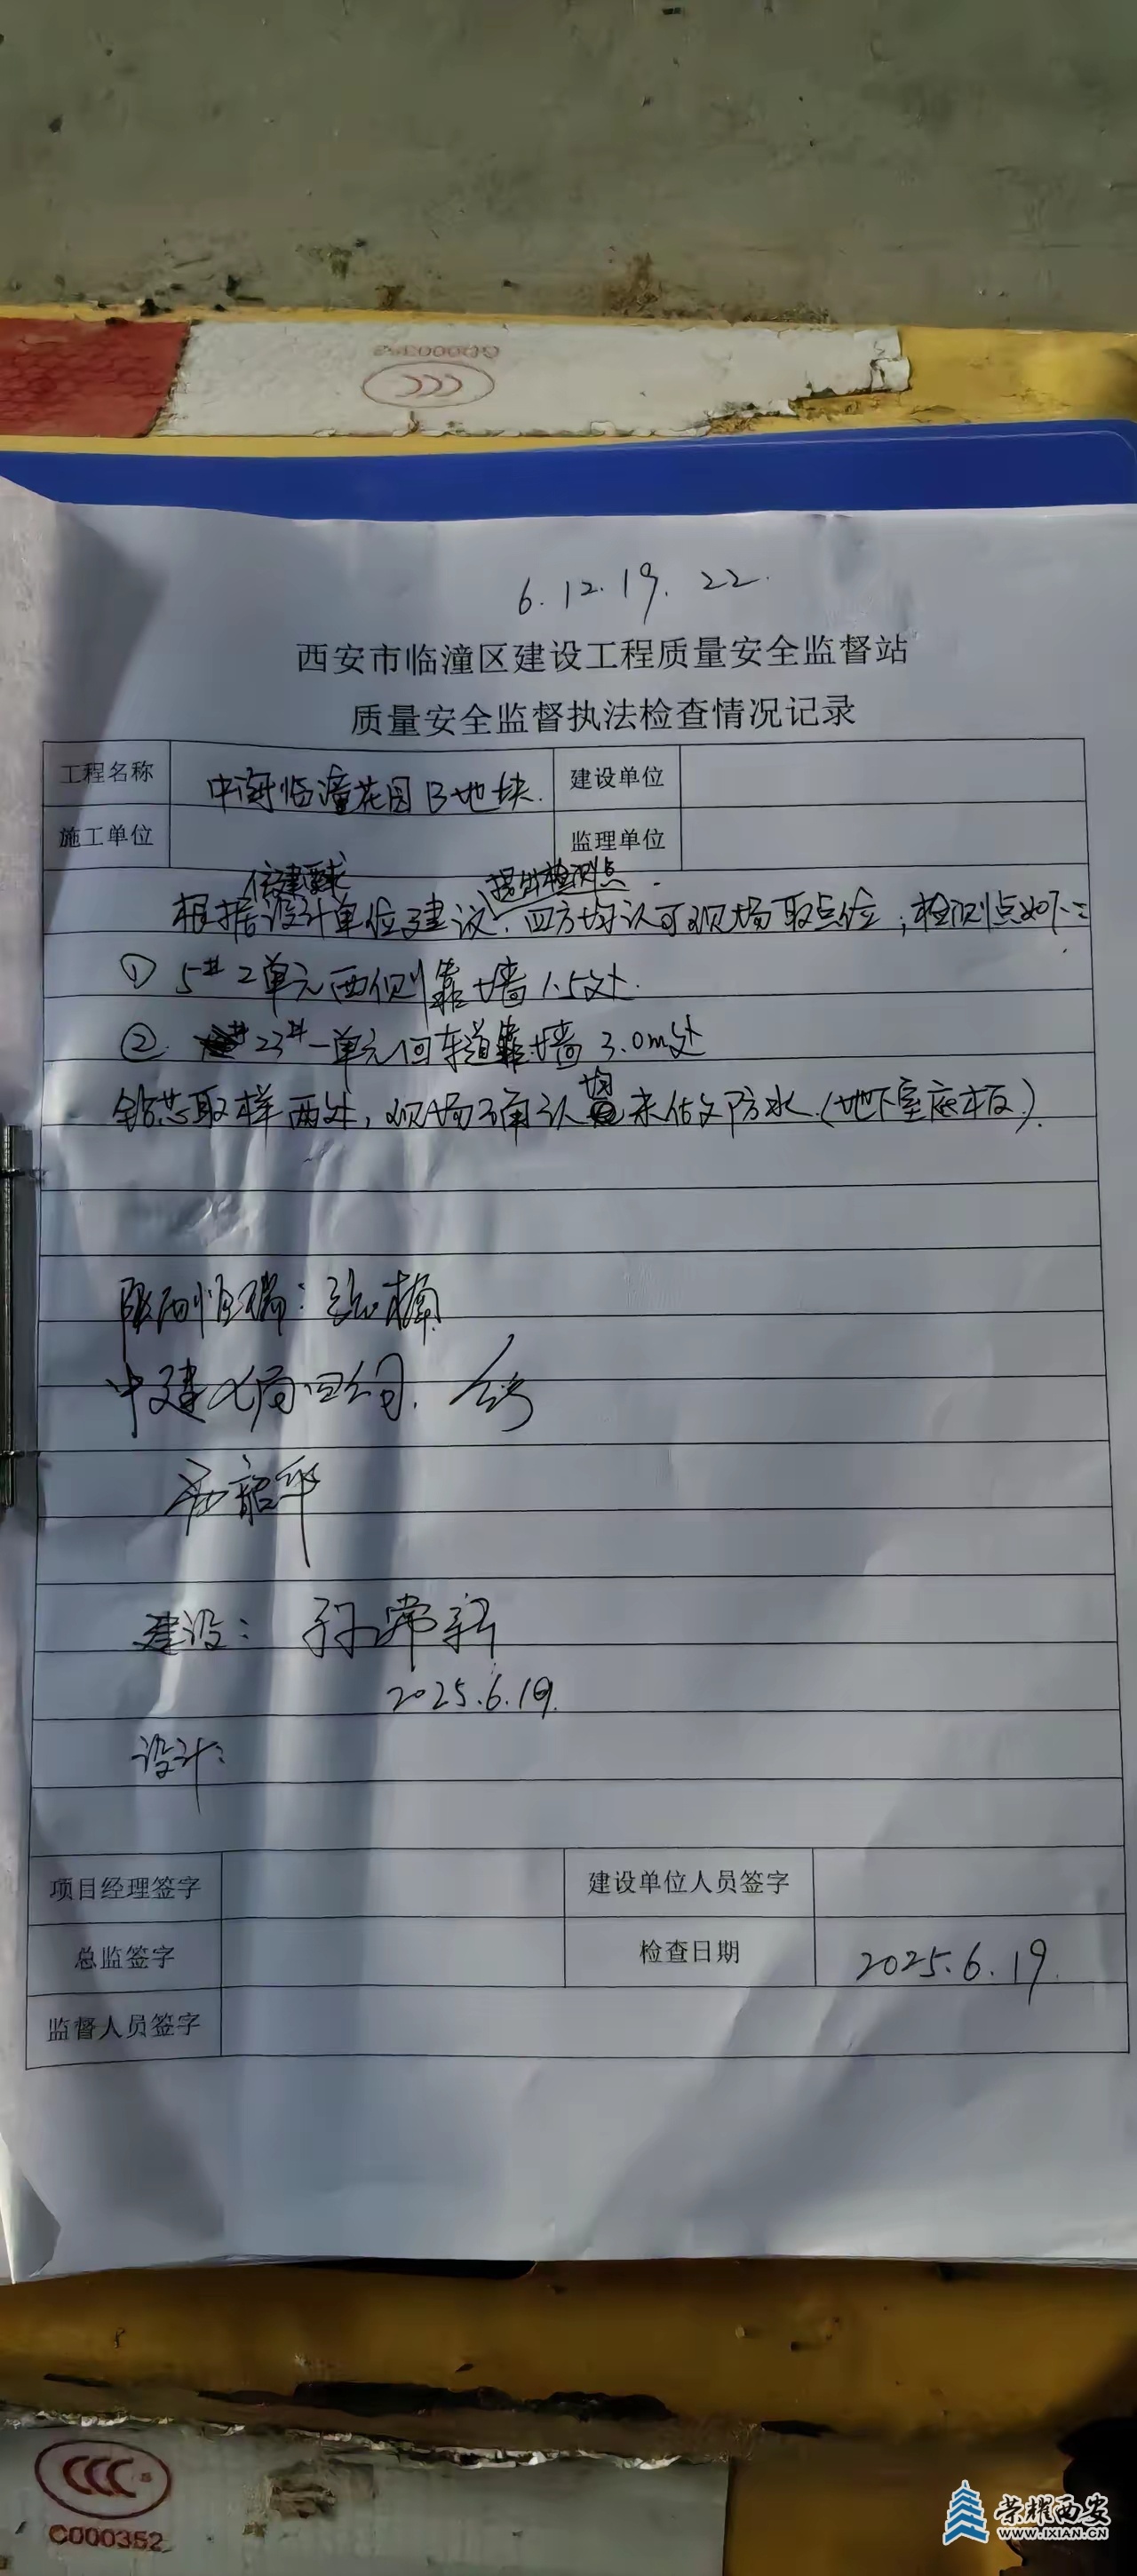 CCC
6.12.19.22.
西安市临潼区建设工程质量安全监督站
质量安全监督执法检查情况记录
工程名称 中海临潼花园B地块. 建设单位
施工单位 监理单位
住建要求 提供检测点.
根据设计单位建议,四方均认可现场取点位,检测点如下:
① 5#2单元西侧靠墙1.5处.
② 23#一单元回车道靠墙3.0m处
均
钻芯取样两处,现场确认未做防水.(地下室底板).
中建七局四公司.
韶华
建设: 孙常
2025.6.19.
设计:
项目经理签字 建设单位人员签字
总监签字 检查日期 2025.6.19.
监督人员签字
CCC S
C000352
荣耀西安
WWW.IXIAN.CN